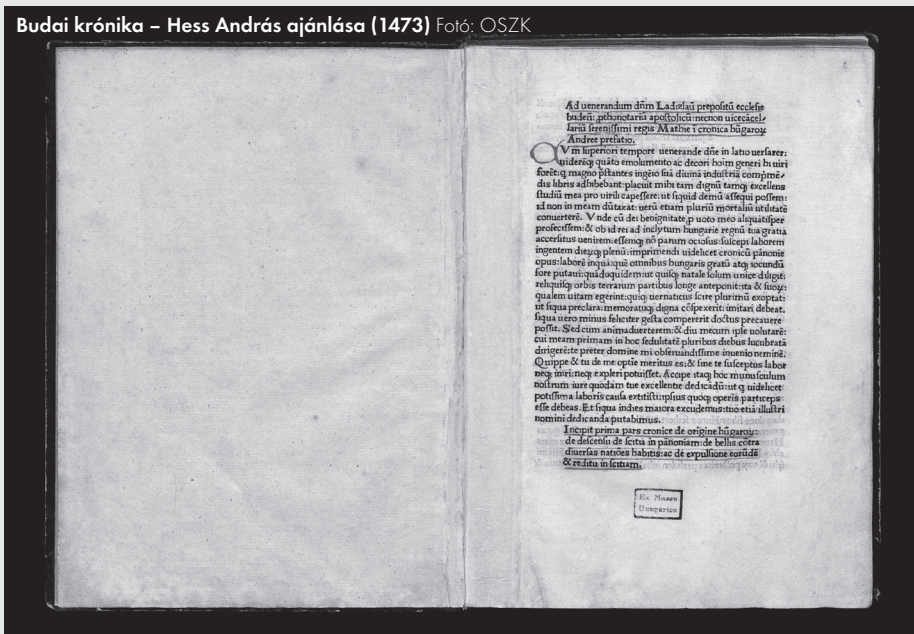 Budai krónika – Hess András ajánlása (1473) Fotó: OSZK
Ad uenerandum dn̄m Ladizlaū prepositū ecclesie
budeñ: ꝓthonotariū apostolicū: necnon uicecācel⸗
lariū serenissimi regis Mathie ī cronica hūgaroꝝ
Andree prefatio.
QVm superiori tempore uenerande dn̄e in latio uersarer:
uideremqꝫ quāto emolumento ac decori hoīm generi hi uiri
forēt: q̨ magno p̄stantes īgēio suā diuinā industriā comp̄mē⸗
dis libris adhibebant: placuit mihi tam dignū tamqꝫ excellens
studiū mea pro uirili capessere: ut siquid demū assequi possem:
id non in meam dūtaxat: uerū etiam pluriū mortaliū utilitatē
conuerterē. Vnde cū dei benignitate ꝓ uoto meo aliquātisper
profecissem: & ob id rei ad inclytum hungarie regnū tua gratia
accersitus uenirem: essemqꝫ nō parum ociosus: suscepi laborem
ingentem dieꝝqꝫ plenū: imprimendi uidelicet cronicū pānonie
opus: laborē inquā: quē omnibus hungaris gratū atqꝫ iocundū
fore putaui: quādoquidem: ut quisqꝫ natale solum unice diligit:
reliquisqꝫ orbis terrarum partibus longe anteponit: ita & suoꝝ:
qualem uitam egerint: quiqꝫ uernaticus scire plurimū exoptat:
ut siqua preclara: memoratuqꝫ digna cōspexerit: imitari debeat.
siqua uero minus feliciter gesta compererit doctus precauere
possit. Sed cum animaduerterem: & diu mecum ipse uolutarē:
cui meam primam in hoc sedulitatē pluribus diebus lucubratā
dirigerē: te preter domine mi obseruandissime inuenio neminē.
Quippe & tu de me optīe meritus es: & sine te susceptus labor
neqꝫ iniri: neqꝫ expleri potuisset. Accipe itaqꝫ hoc munusculum
nostrum iure quodam tue excellentie dedicādū: ut q uidelicet
potissima laboris causa extitisti: ipsius quoqꝫ operis particeps
esse debeas. Et siqua indies maiora excudemus: tuo etiā illustri
nomini dedicanda putabimus.
Incipit prima pars cronice de origine hūgaroꝝ:
de descensu de scitia in pānoniam: de bellis cōtra
diuersas natiōes habitis: ac de expulsione eorūdē
& reditu in scitiam.
Ex Museo
Hungarico